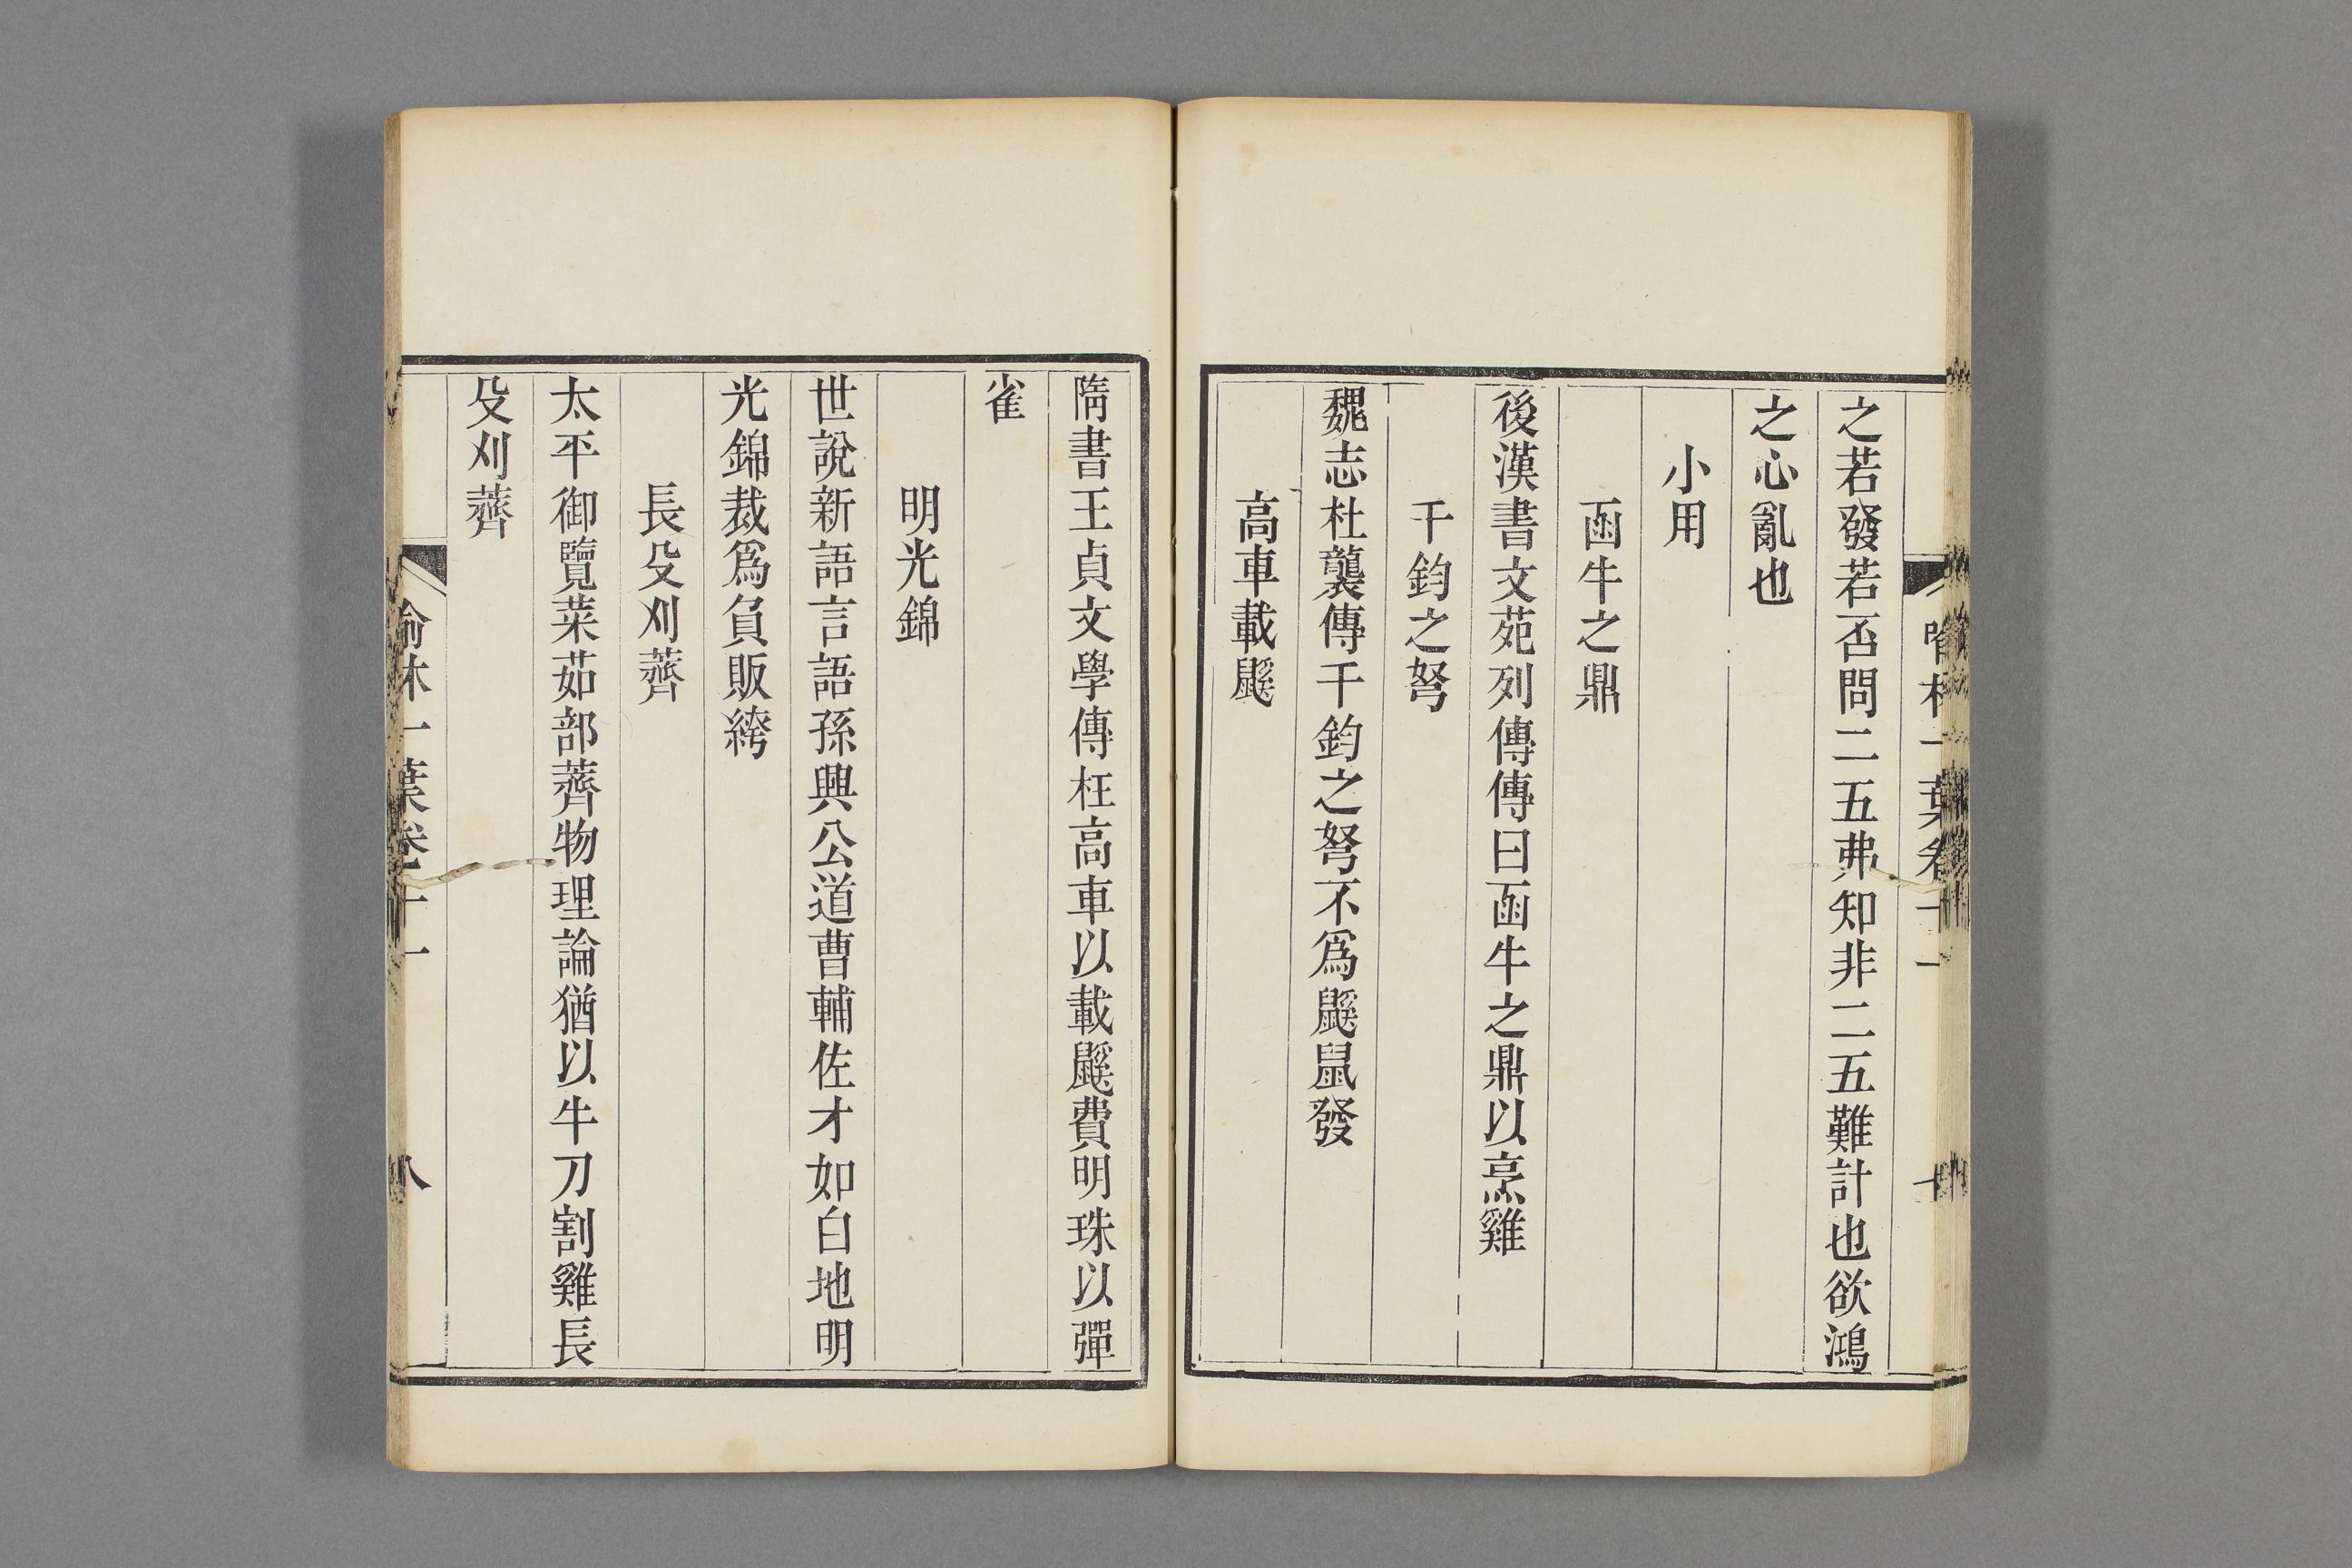 之若發若否問二五弗知非二五難計也欲鴻
之心亂也
小用
函牛之鼎
後漢書文苑列傳傳曰函牛之鼎以烹雞
千鈞之弩
魏志杜襲傳千鈞之弩不爲鼷鼠發
高車載鼷
隋書王貞文學傳枉高車以載鼷費明珠以彈
雀
明光錦
世說新語言語孫興公道曹輔佐才如白地明
光錦裁爲負販絝
長殳刈薺
太平御覽菜茹部薺物理論猶以牛刀割雞長
殳刈薺
喻林一葉卷十一
八